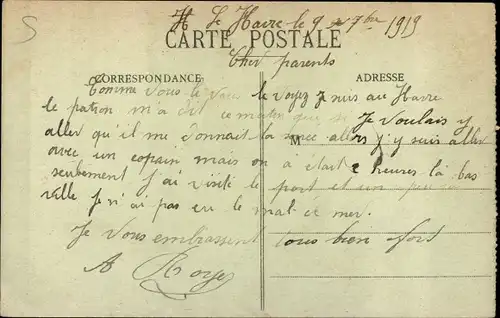 S
H Le Havre le 9 - 7bre 1919
CARTE POSTALE
Cher parents
CORRESPONDANCE ADRESSE
Comme vous le le voyez Je suis au Havre
le patron m'a dit ce matin que si Je voulais y
aller qu'il me donnait la allers j'y suis aller
M
avec un copain mais on a était 2 heures là bas
seulement J'ai visité le port et un peu la
ville Je n'ai pas eu le mal de mer.
Je vous embrassent tous bien fort
A Roye